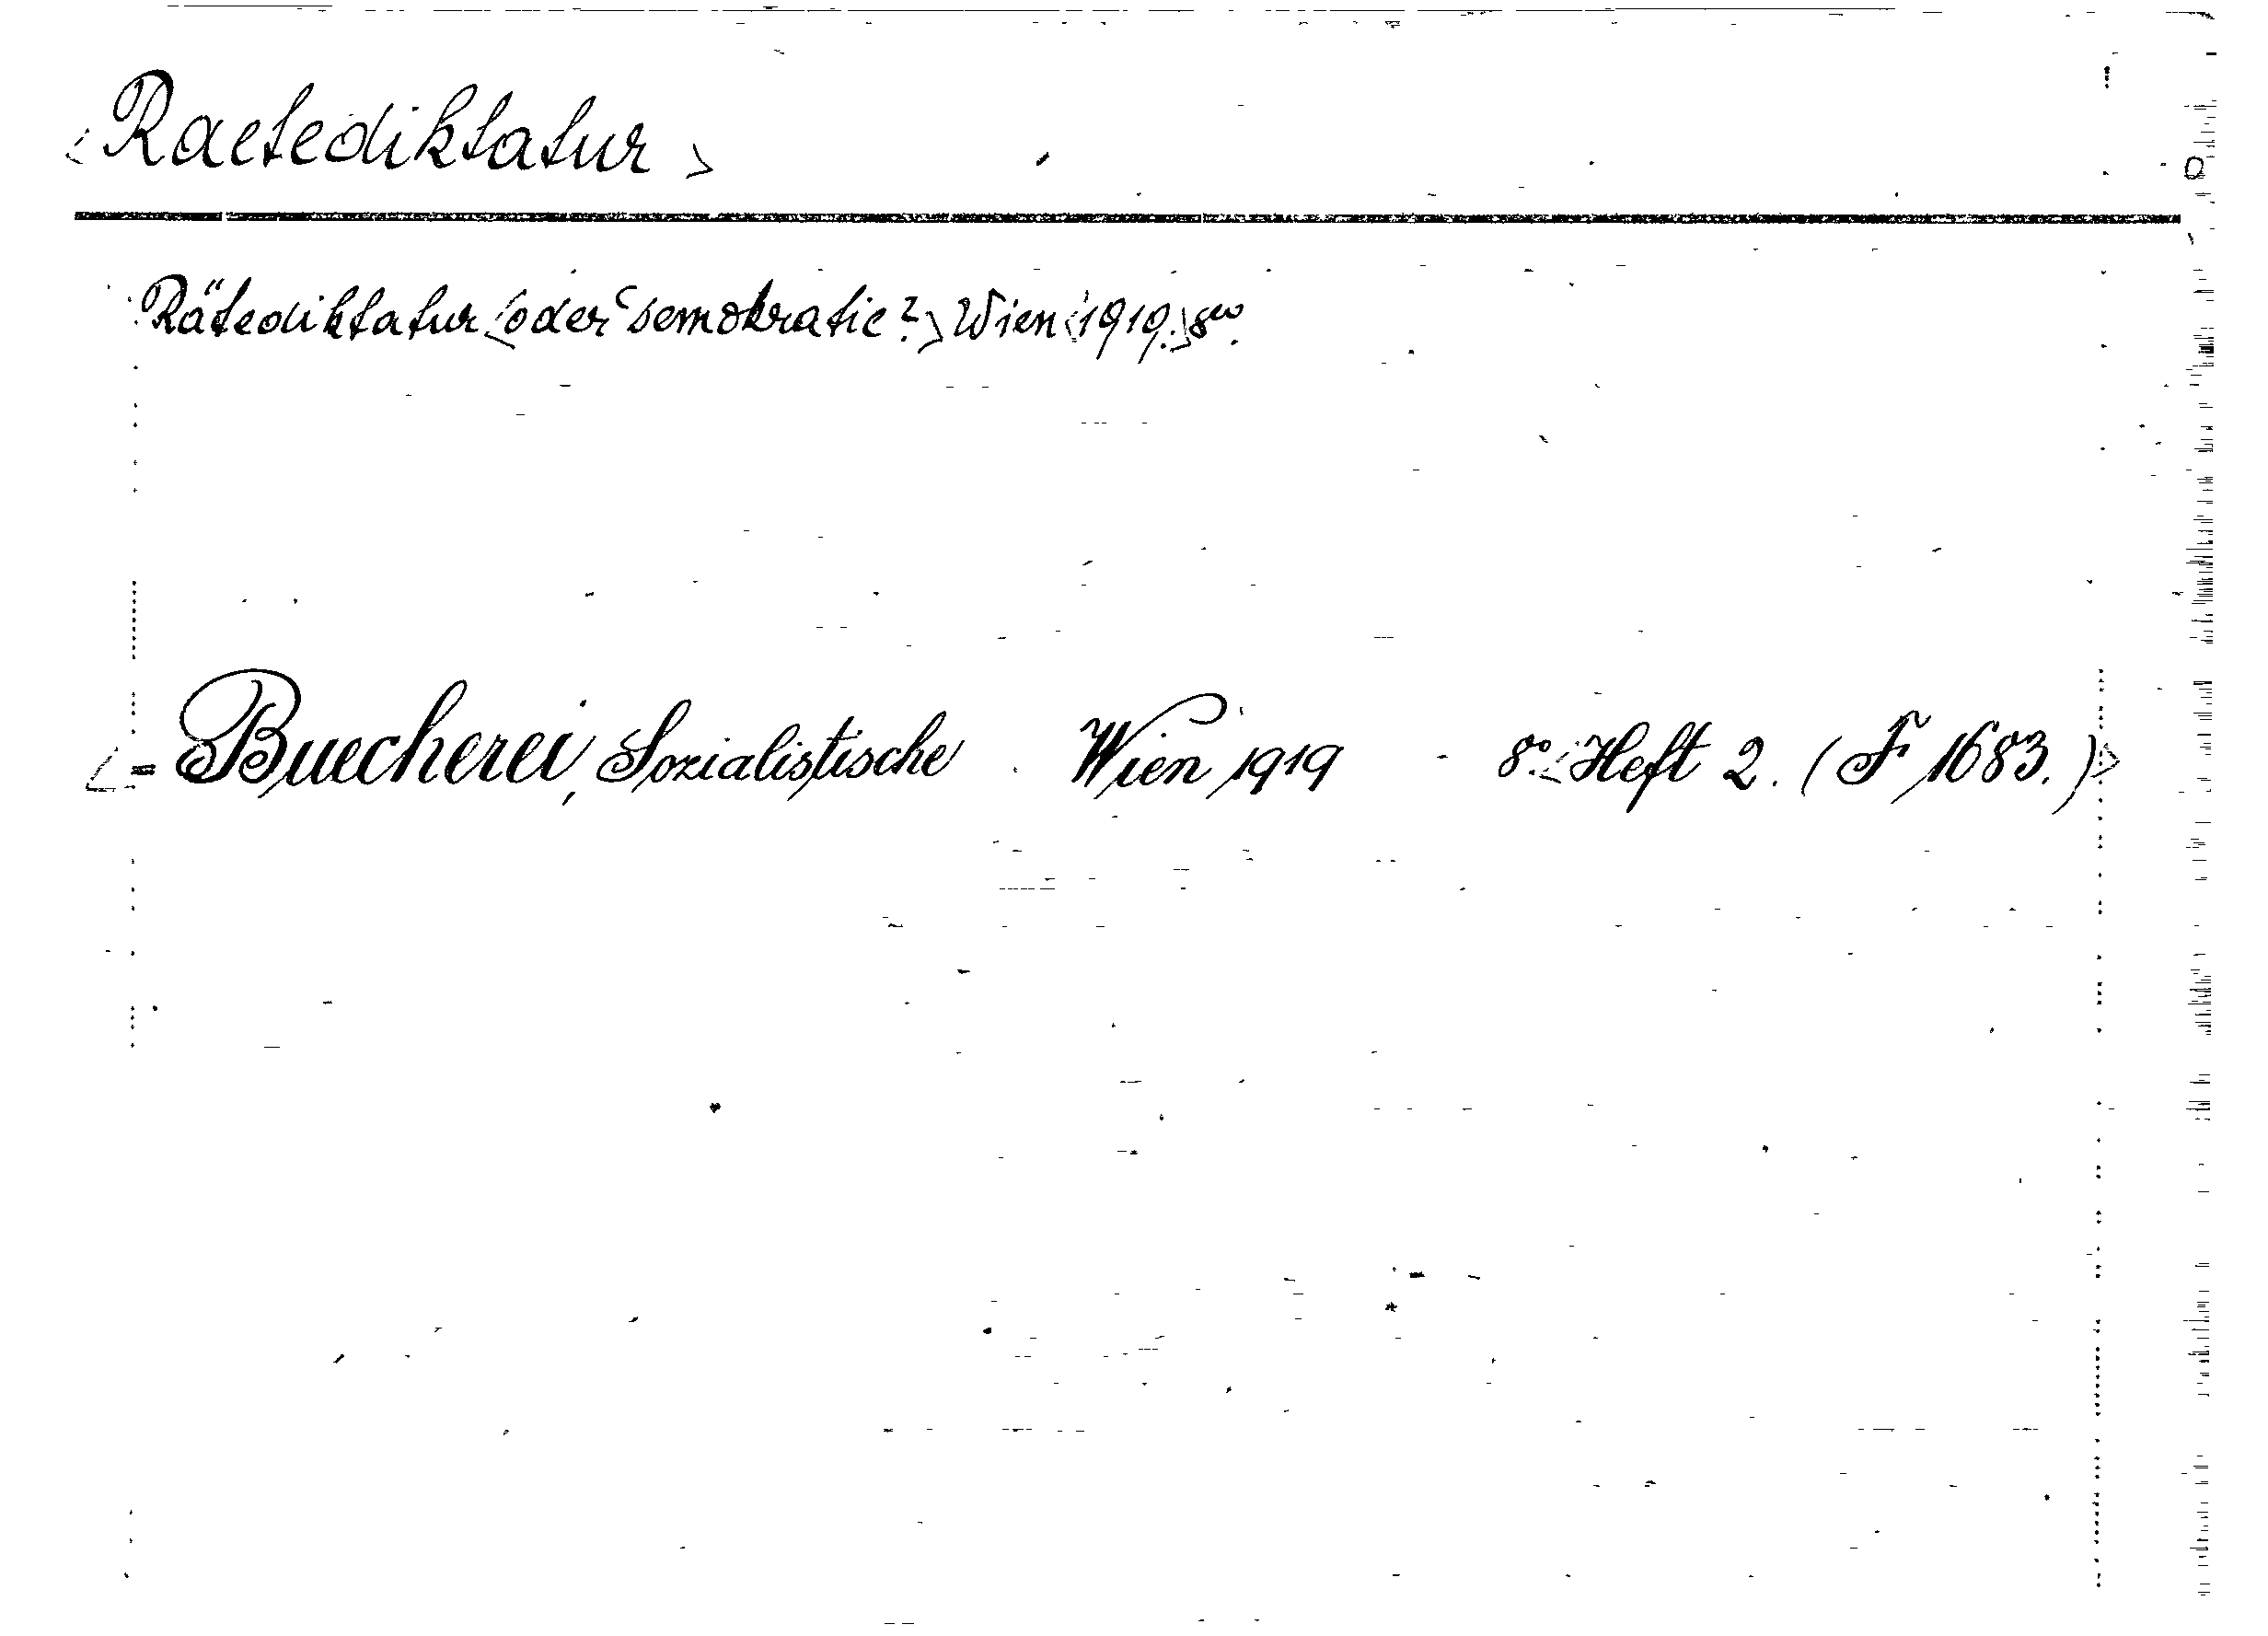 <Raetediktatur>
Rätediktatur <oder Demokratie?> Wien <1919.> 8vo.
<= Buecherei, Sozialistische . Wien 1919 - 8o. <Heft 2. (F 1683.)>